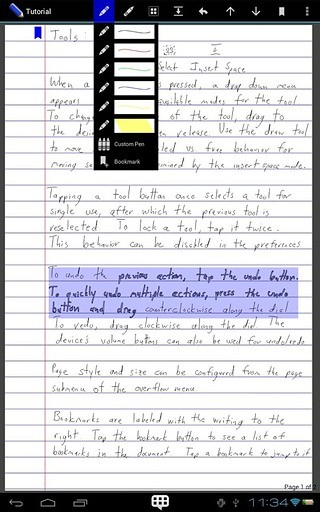 Tutorial
Tools:
Select Insert Space
When a s pressed, a drop down menu
appears available modes for the tool
To chang of the tool, drag to
the desi en release. Use the draw tool
to move led vs free behavior for
moving se mined by the insert space mode.
Tapping a tool button once selects a tool for
single use, after which the previous tool is
reselected To lock a tool, tap it twice.
This behavior can be disabled in the preferences
To undo the previous action, tap the undo button.
To quickly undo multiple actions, press the undo
button and drag counterclockwise along the dial
To redo, drag clockwise along the dial The
device's volume buttons can also be used for undo/redo
Page style and size can be configured from the page
submenu of the overflow menu
Bookmarks are labeled with the writing to the
right Tap the bookmark button to see a list of
bookmarks in the document Tap a bookmark to jump to it
Custom Pen
Bookmark
Page 1 of 2
11:34